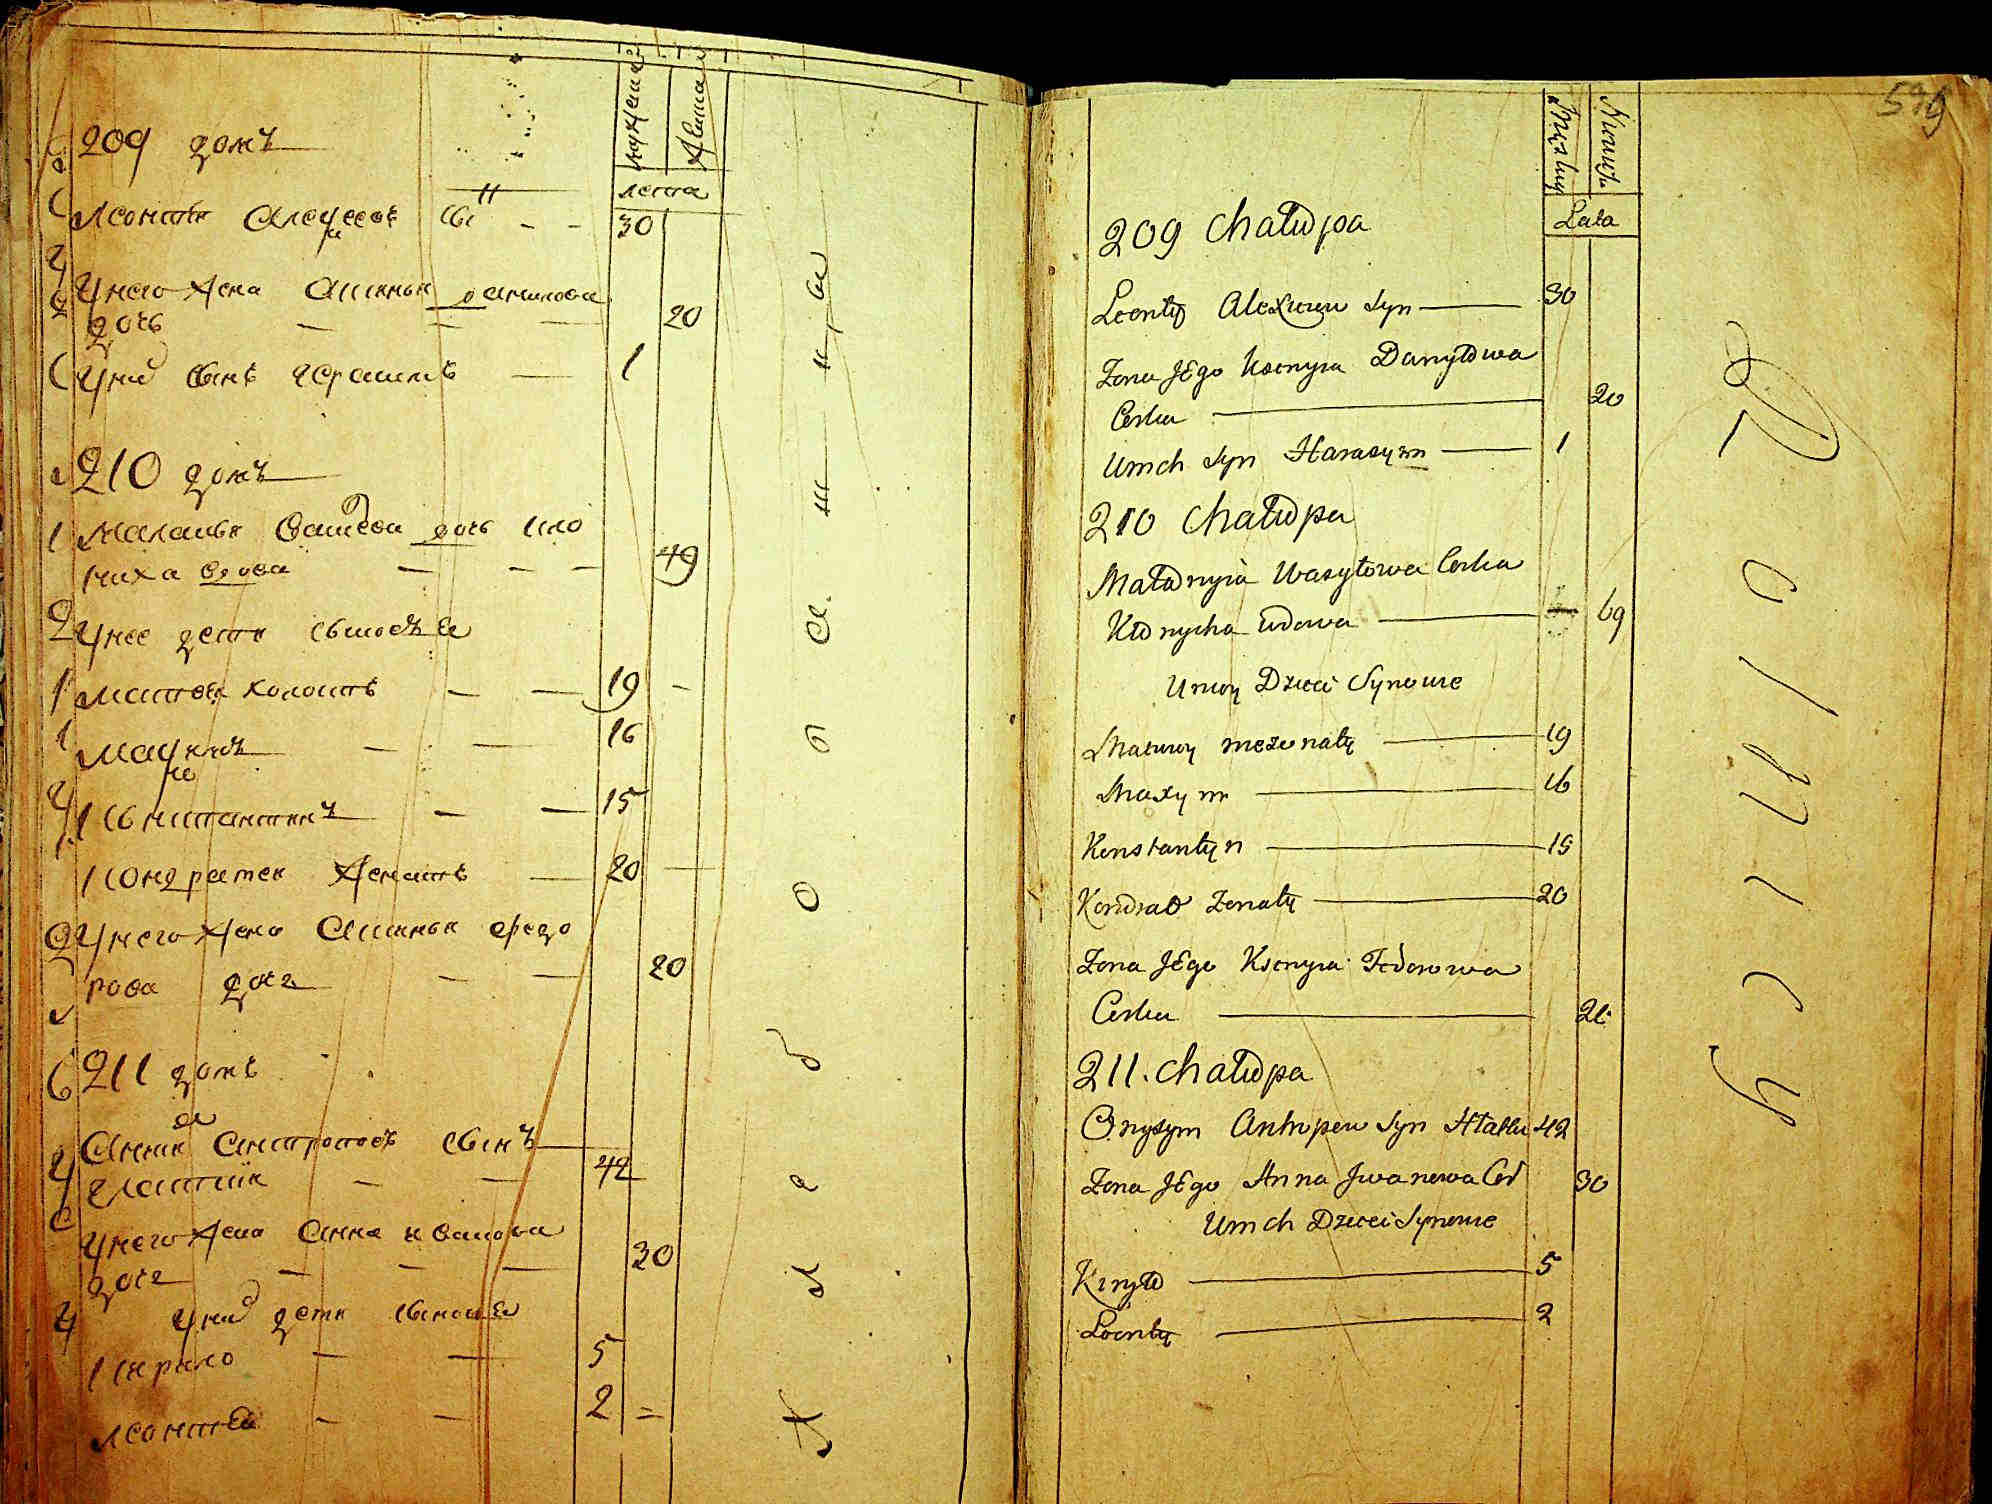 209 домъ
лета
Леонтїи Алеѯеевъ сынъ 30
У него жена Аѯинья данилова
дочь 20
У них сынъ герасимъ 1
210 домъ
Маланья Васил дочь Кло
ниха вдова 49
У нее дети сыновья
Матвеи холостъ 19
Маѯимъ 16
Константинъ 15
Кондратеи женатъ 20
У него жена Аѯинья Федо
рова дочь 20
211 домъ
Антроповъ сынъ
42
У него жена Анна Иванова
дочь 30
У них дети сыновья
Кирило 5
Леонтеи 2
Хлебопашцы
Lata
209 Chałupa
Leontÿ Alexiew Syn 30
Zona JEgo Ksenyia Danyłowa
Corka 20
Unich Syn Harasym 1
210 Chałupa
Małanyia Wasyłowa Corka
Kłonycha wdowa 69
Uniey Dzieci Synowie
Matwey niezonaty 19
Maxym 16
Konstantyn 15
Kondrad Zonaty 20
Zona JEgo Ksenyia Fedorowa
Corka 20
211. Chałupa
Onysym Antropew Syn Hlatki 42
Zona JEgo Anna Jwanowa Cor 30
Unich Dzieci Synowie
Kiryło 5
Leonty 2
Rolnicy